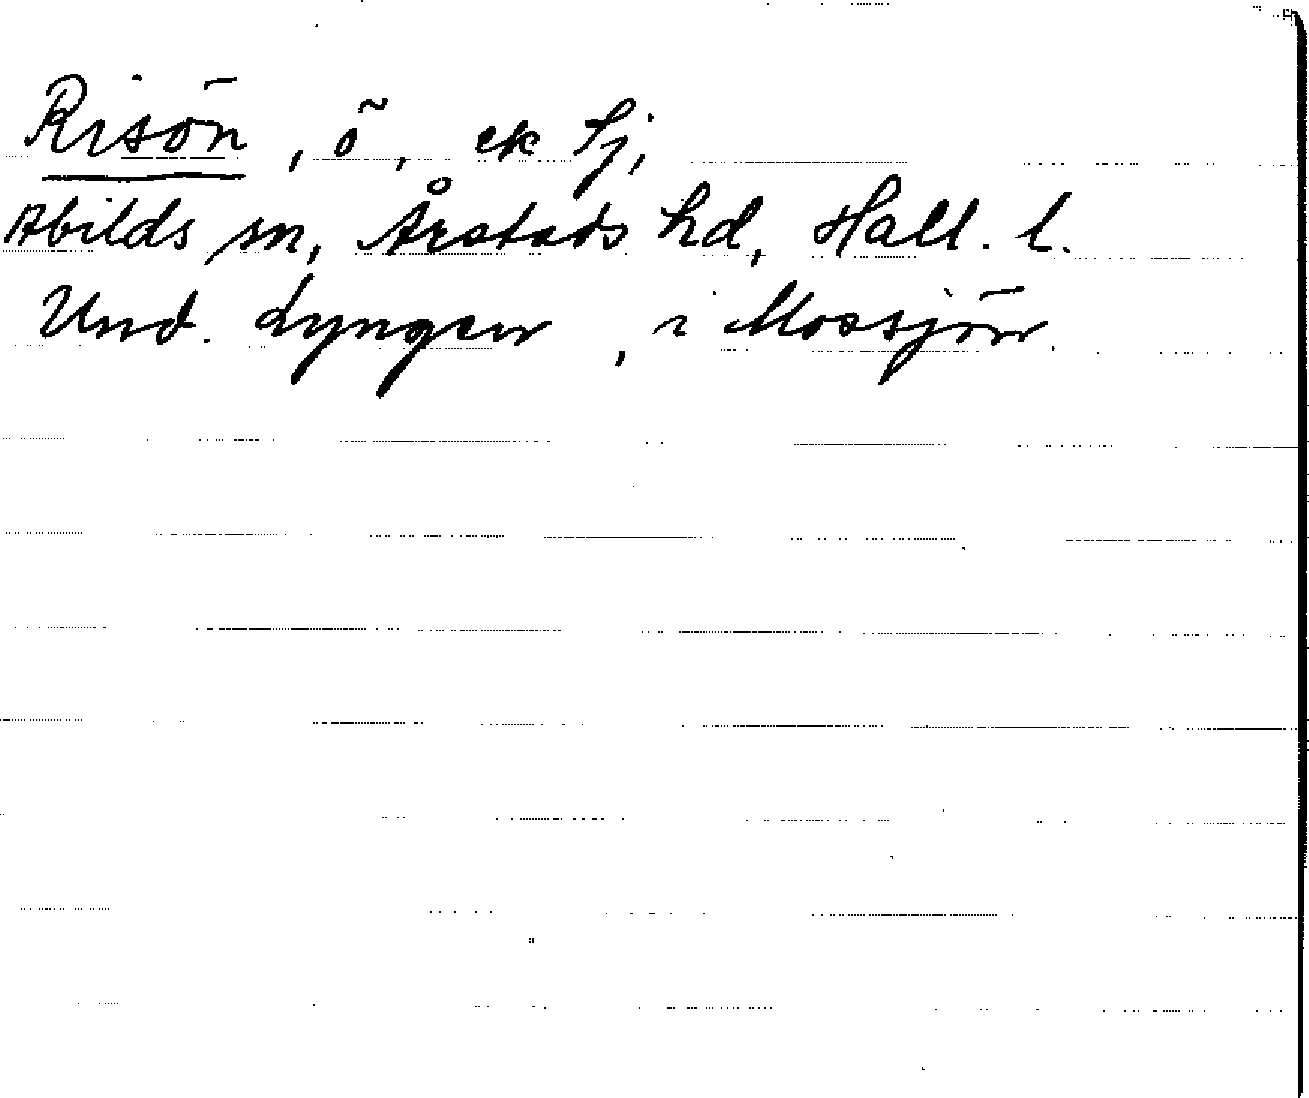 Risön, ö, ek Sj,
Abilds sn, Årstads hd, Hall. l.
Und. Lyngen, i Mossjön.